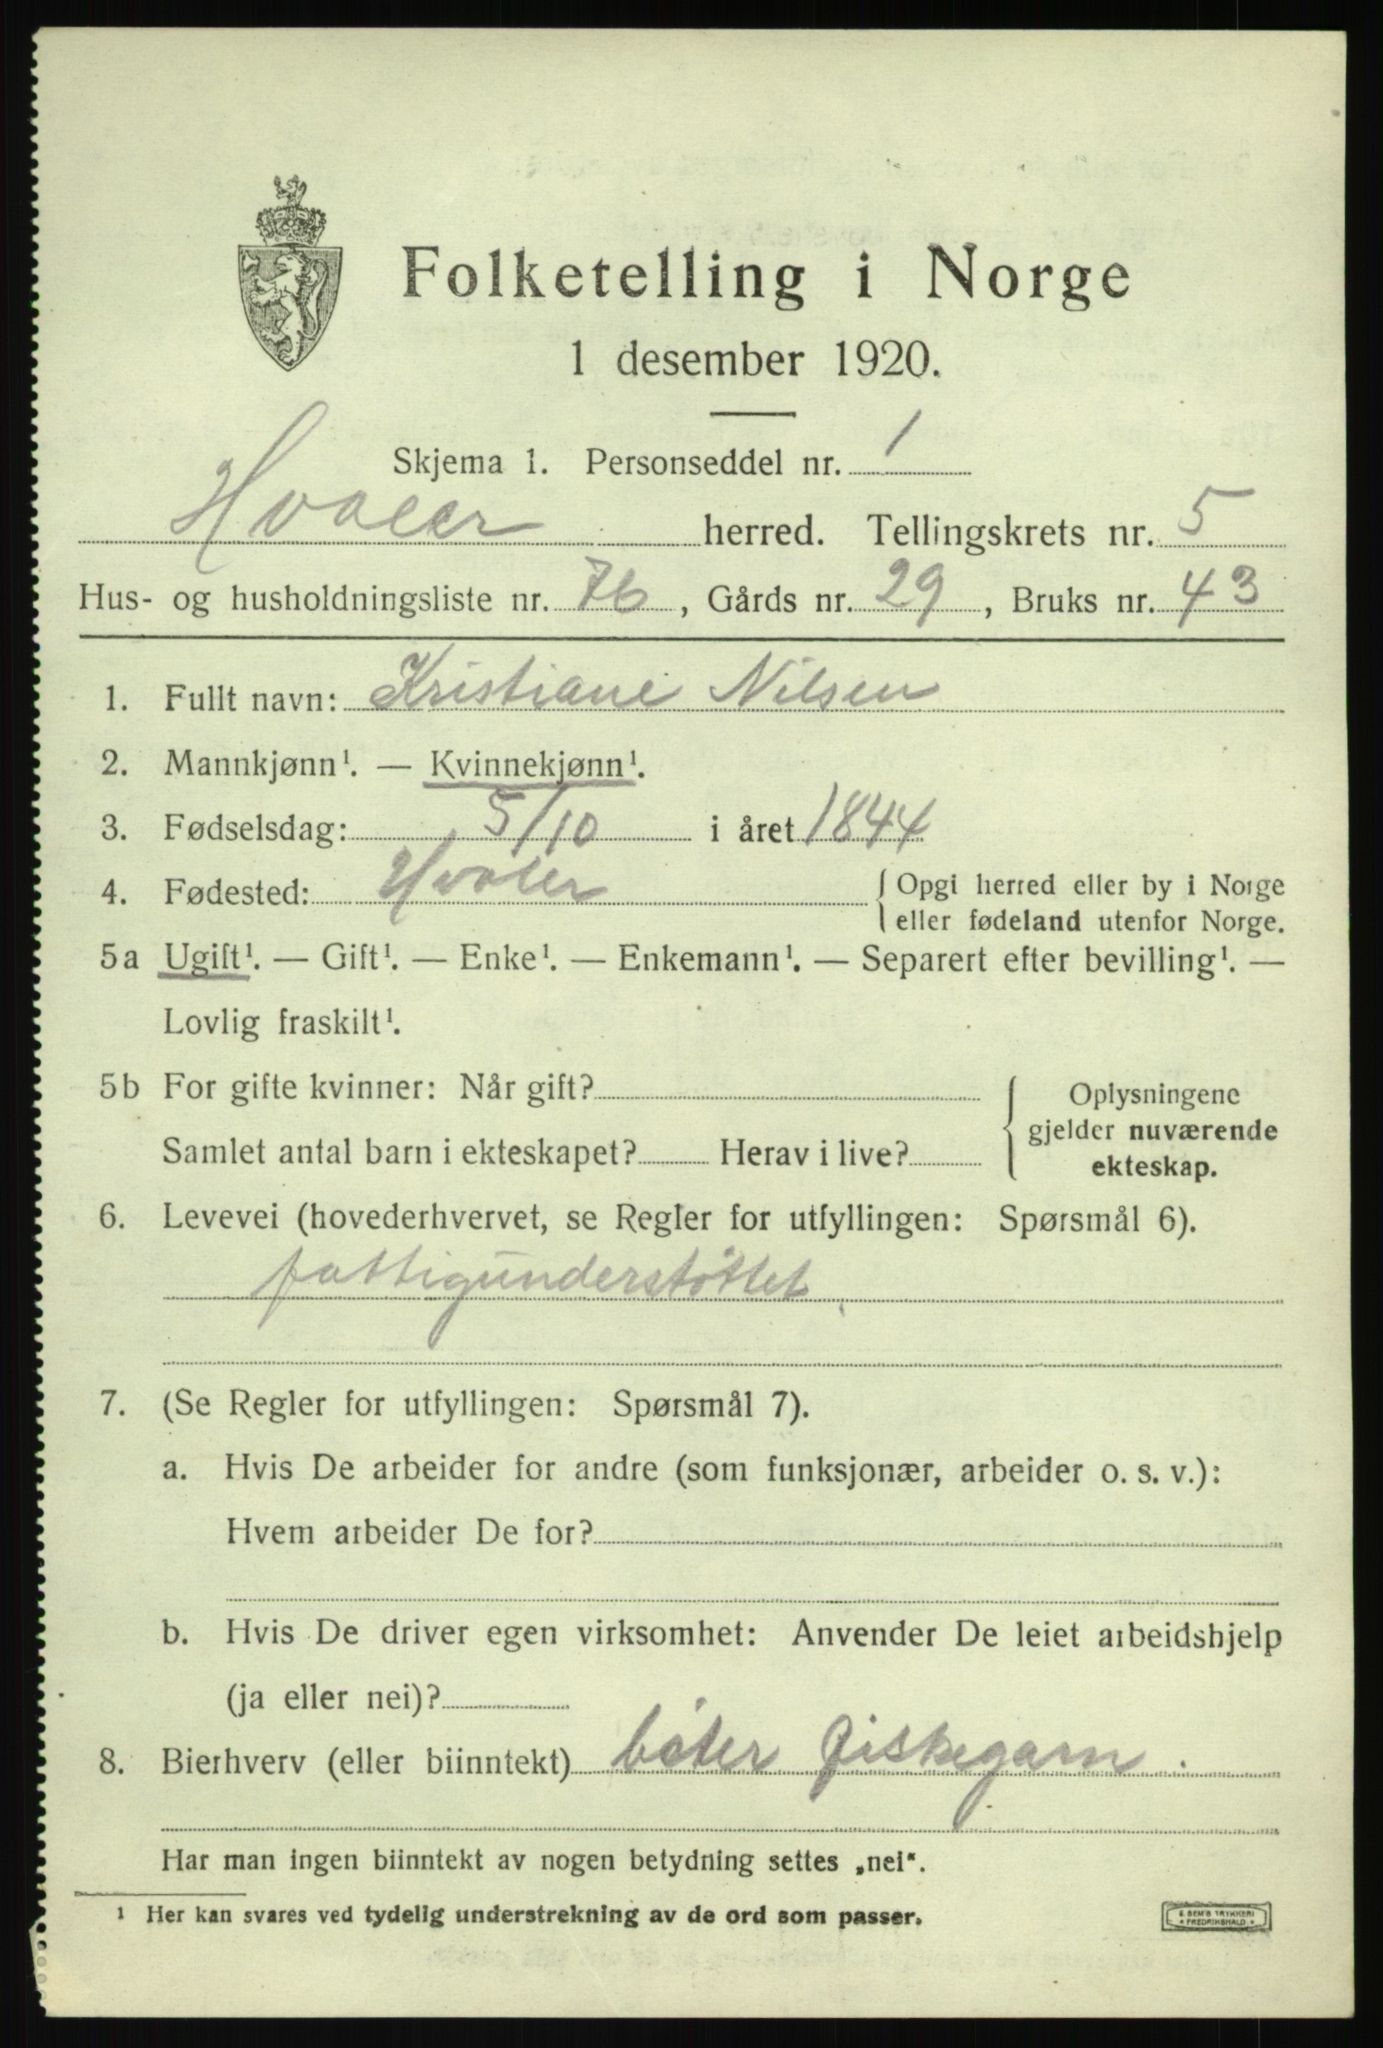 Folketelling i Norge
1 desember 1920.
Skjema 1. Personseddel nr. 1
Hvaler herred. Tellingskrets nr. 5
Hus- og husholdningsliste nr. 76, Gårds nr. 29, Bruks nr. 43
1. Fullt navn: Kristiane Nilsen
2. Mannkjønn¹. — Kvinnekjønn¹.
3. Fødselsdag: 5/10 i året 1844
4. Fødested: Hvaler { Opgi herred eller by i Norge
eller fødeland utenfor Norge.
5a Ugift¹. — Gift¹. — Enke¹. — Enkemann¹. — Separert efter bevilling¹. —
Lovlig fraskilt¹.
5b For gifte kvinner: Når gift? { Oplysningene
gjelder nuværende
Samlet antal barn i ekteskapet? Herav i live?
ekteskap.
6. Levevei (hovederhvervet, se Regler for utfyllingen: Spørsmål 6).
fattigunderstøttet
7. (Se Regler for utfyllingen: Spørsmål 7).
a. Hvis De arbeider for andre (som funksjonær, arbeider o. s. v.):
Hvem arbeider De for?
b. Hvis De driver egen virksomhet: Anvender De leiet arbeidshjelp
(ja eller nei)?
8. Bierhverv (eller biinntekt) bøter fiskegarn.
Har man ingen biinntekt av nogen betydning settes „nei“.
¹ Her kan svares ved tydelig understrekning av de ord som passer.
E. SEM'S TRYKKERI
FREDRIKSHALD